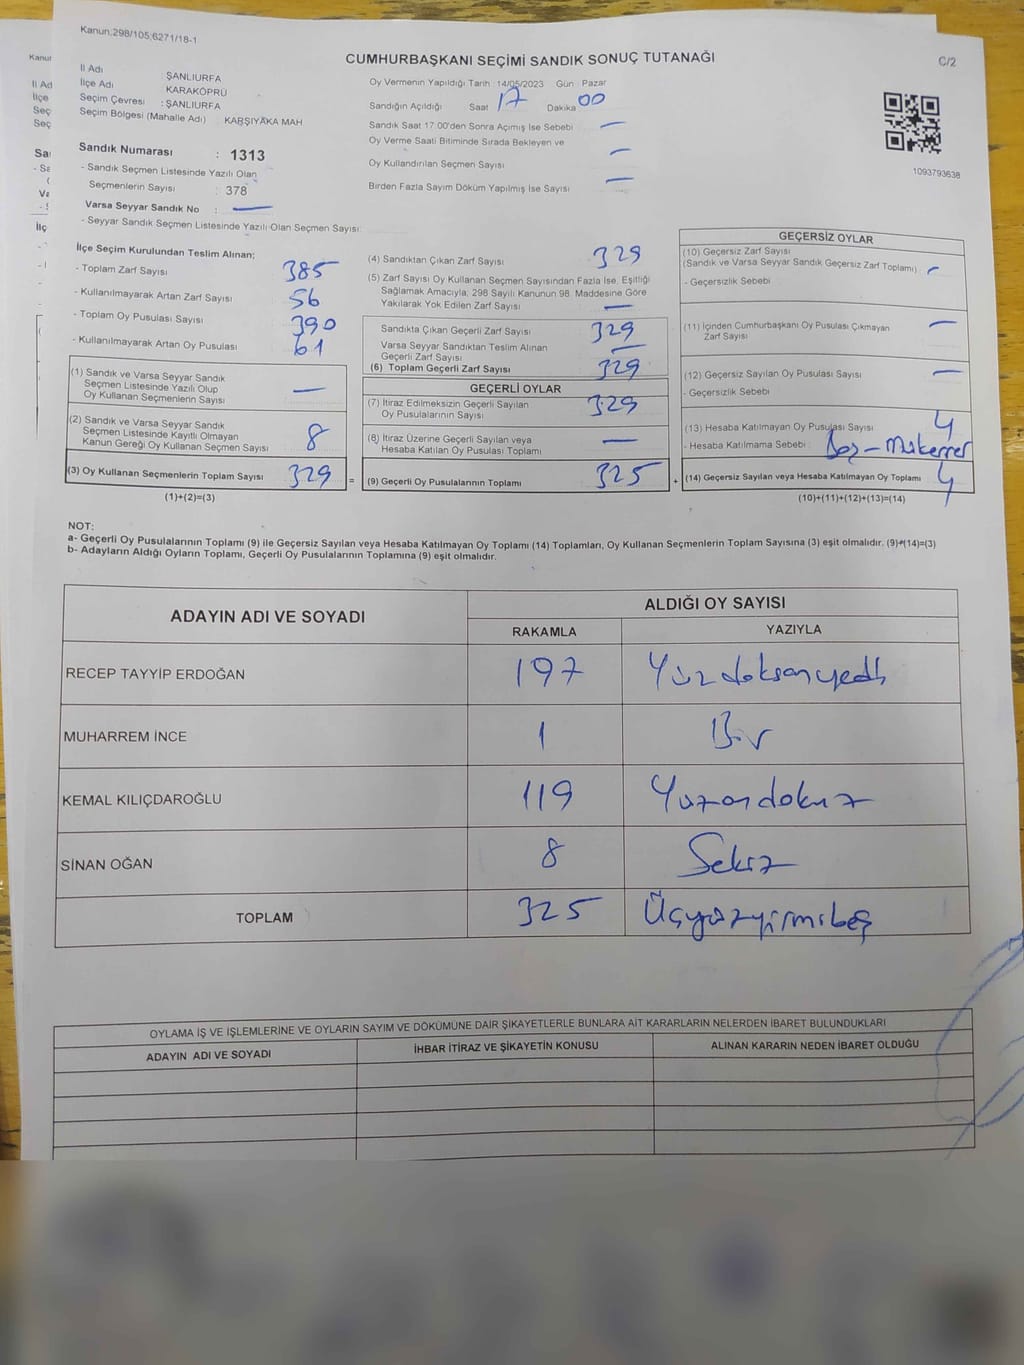 Kanun:298/105,6271/18-1
CUMHURBAŞKANI SEÇİMİ SANDIK SONUÇ TUTANAĞI
C/2
İl Adı ŞANLIURFA
İlçe Adı KARAKÖPRÜ
Seçim Çevresi : ŞANLIURFA
Seçim Bölgesi (Mahalle Adı) : KARŞIYAKA MAH
Sandık Numarası : 1313
- Sandık Seçmen Listesinde Yazılı Olan
Seçmenlerin Sayısı : 378
Varsa Seyyar Sandık No : —
- Seyyar Sandık Seçmen Listesinde Yazılı Olan Seçmen Sayısı:
Oy Vermenin Yapıldığı Tarih 14/05/2023 Gün Pazar
Sandığın Açıldığı Saat 17 Dakika 00
Sandık Saat 17.00'den Sonra Açımış İse Sebebi —
Oy Verme Saati Bitiminde Sırada Bekleyen ve
Oy Kullandırılan Seçmen Sayısı —
Birden Fazla Sayım Döküm Yapılmış İse Sayısı —
1093793638
İlçe Seçim Kurulundan Teslim Alınan;
- Toplam Zarf Sayısı 385
- Kullanılmayarak Artan Zarf Sayısı 56
- Toplam Oy Pusulası Sayısı 390
- Kullanılmayarak Artan Oy Pusulası 61
(1) Sandık ve Varsa Seyyar Sandık
Seçmen Listesinde Yazılı Olup
Oy Kullanan Seçmenlerin Sayısı —
(2) Sandık ve Varsa Seyyar Sandık
Seçmen Listesinde Kayıtlı Olmayan
Kanun Gereği Oy Kullanan Seçmen Sayısı 8
(3) Oy Kullanan Seçmenlerin Toplam Sayısı 329 =
(1)+(2)=(3)
(4) Sandıktan Çıkan Zarf Sayısı 329
(5) Zarf Sayısı Oy Kullanan Seçmen Sayısından Fazla İse, Eşitliği
Sağlamak Amacıyla; 298 Sayılı Kanunun 98. Maddesine Göre
Yakılarak Yok Edilen Zarf Sayısı —
Sandıkta Çıkan Geçerli Zarf Sayısı 329
Varsa Seyyar Sandıktan Teslim Alınan
Geçerli Zarf Sayısı —
(6) Toplam Geçerli Zarf Sayısı 329
GEÇERLİ OYLAR
(7) İtiraz Edilmeksizin Geçerli Sayılan
Oy Pusulalarının Sayısı 329
(8) İtiraz Üzerine Geçerli Sayılan veya
Hesaba Katılan Oy Pusulası Toplamı —
(9) Geçerli Oy Pusulalarının Toplamı 325 +
GEÇERSİZ OYLAR
(10) Geçersiz Zarf Sayısı
(Sandık ve Varsa Seyyar Sandık Geçersiz Zarf Toplamı) —
- Geçersizlik Sebebi
(11) İçinden Cumhurbaşkanı Oy Pusulası Çıkmayan
Zarf Sayısı —
(12) Geçersiz Sayılan Oy Pusulası Sayısı —
- Geçersizlik Sebebi
(13) Hesaba Katılmayan Oy Pusulası Sayısı 4
- Hesaba Katılmama Sebebi Boş - Mükerrer
(14) Geçersiz Sayılan veya Hesaba Katılmayan Oy Toplamı 4
(10)+(11)+(12)+(13)=(14)
NOT:
a- Geçerli Oy Pusulalarının Toplamı (9) ile Geçersiz Sayılan veya Hesaba Katılmayan Oy Toplamı (14) Toplamları, Oy Kullanan Seçmenlerin Toplam Sayısına (3) eşit olmalıdır. (9)+(14)=(3)
b- Adayların Aldığı Oyların Toplamı, Geçerli Oy Pusulalarının Toplamına (9) eşit olmalıdır.
ADAYIN ADI VE SOYADI ALDIĞI OY SAYISI
RAKAMLA YAZIYLA
RECEP TAYYİP ERDOĞAN 197 Yüzdoksanyedi
MUHARREM İNCE 1 Bir
KEMAL KILIÇDAROĞLU 119 Yüzondokuz
SİNAN OĞAN 8 Sekiz
TOPLAM 325 Üçyüzyirmibeş
OYLAMA İŞ VE İŞLEMLERİNE VE OYLARIN SAYIM VE DÖKÜMÜNE DAİR ŞİKAYETLERLE BUNLARA AİT KARARLARIN NELERDEN İBARET BULUNDUKLARI
ADAYIN ADI VE SOYADI İHBAR İTİRAZ VE ŞİKAYETİN KONUSU ALINAN KARARIN NEDEN İBARET OLDUĞU